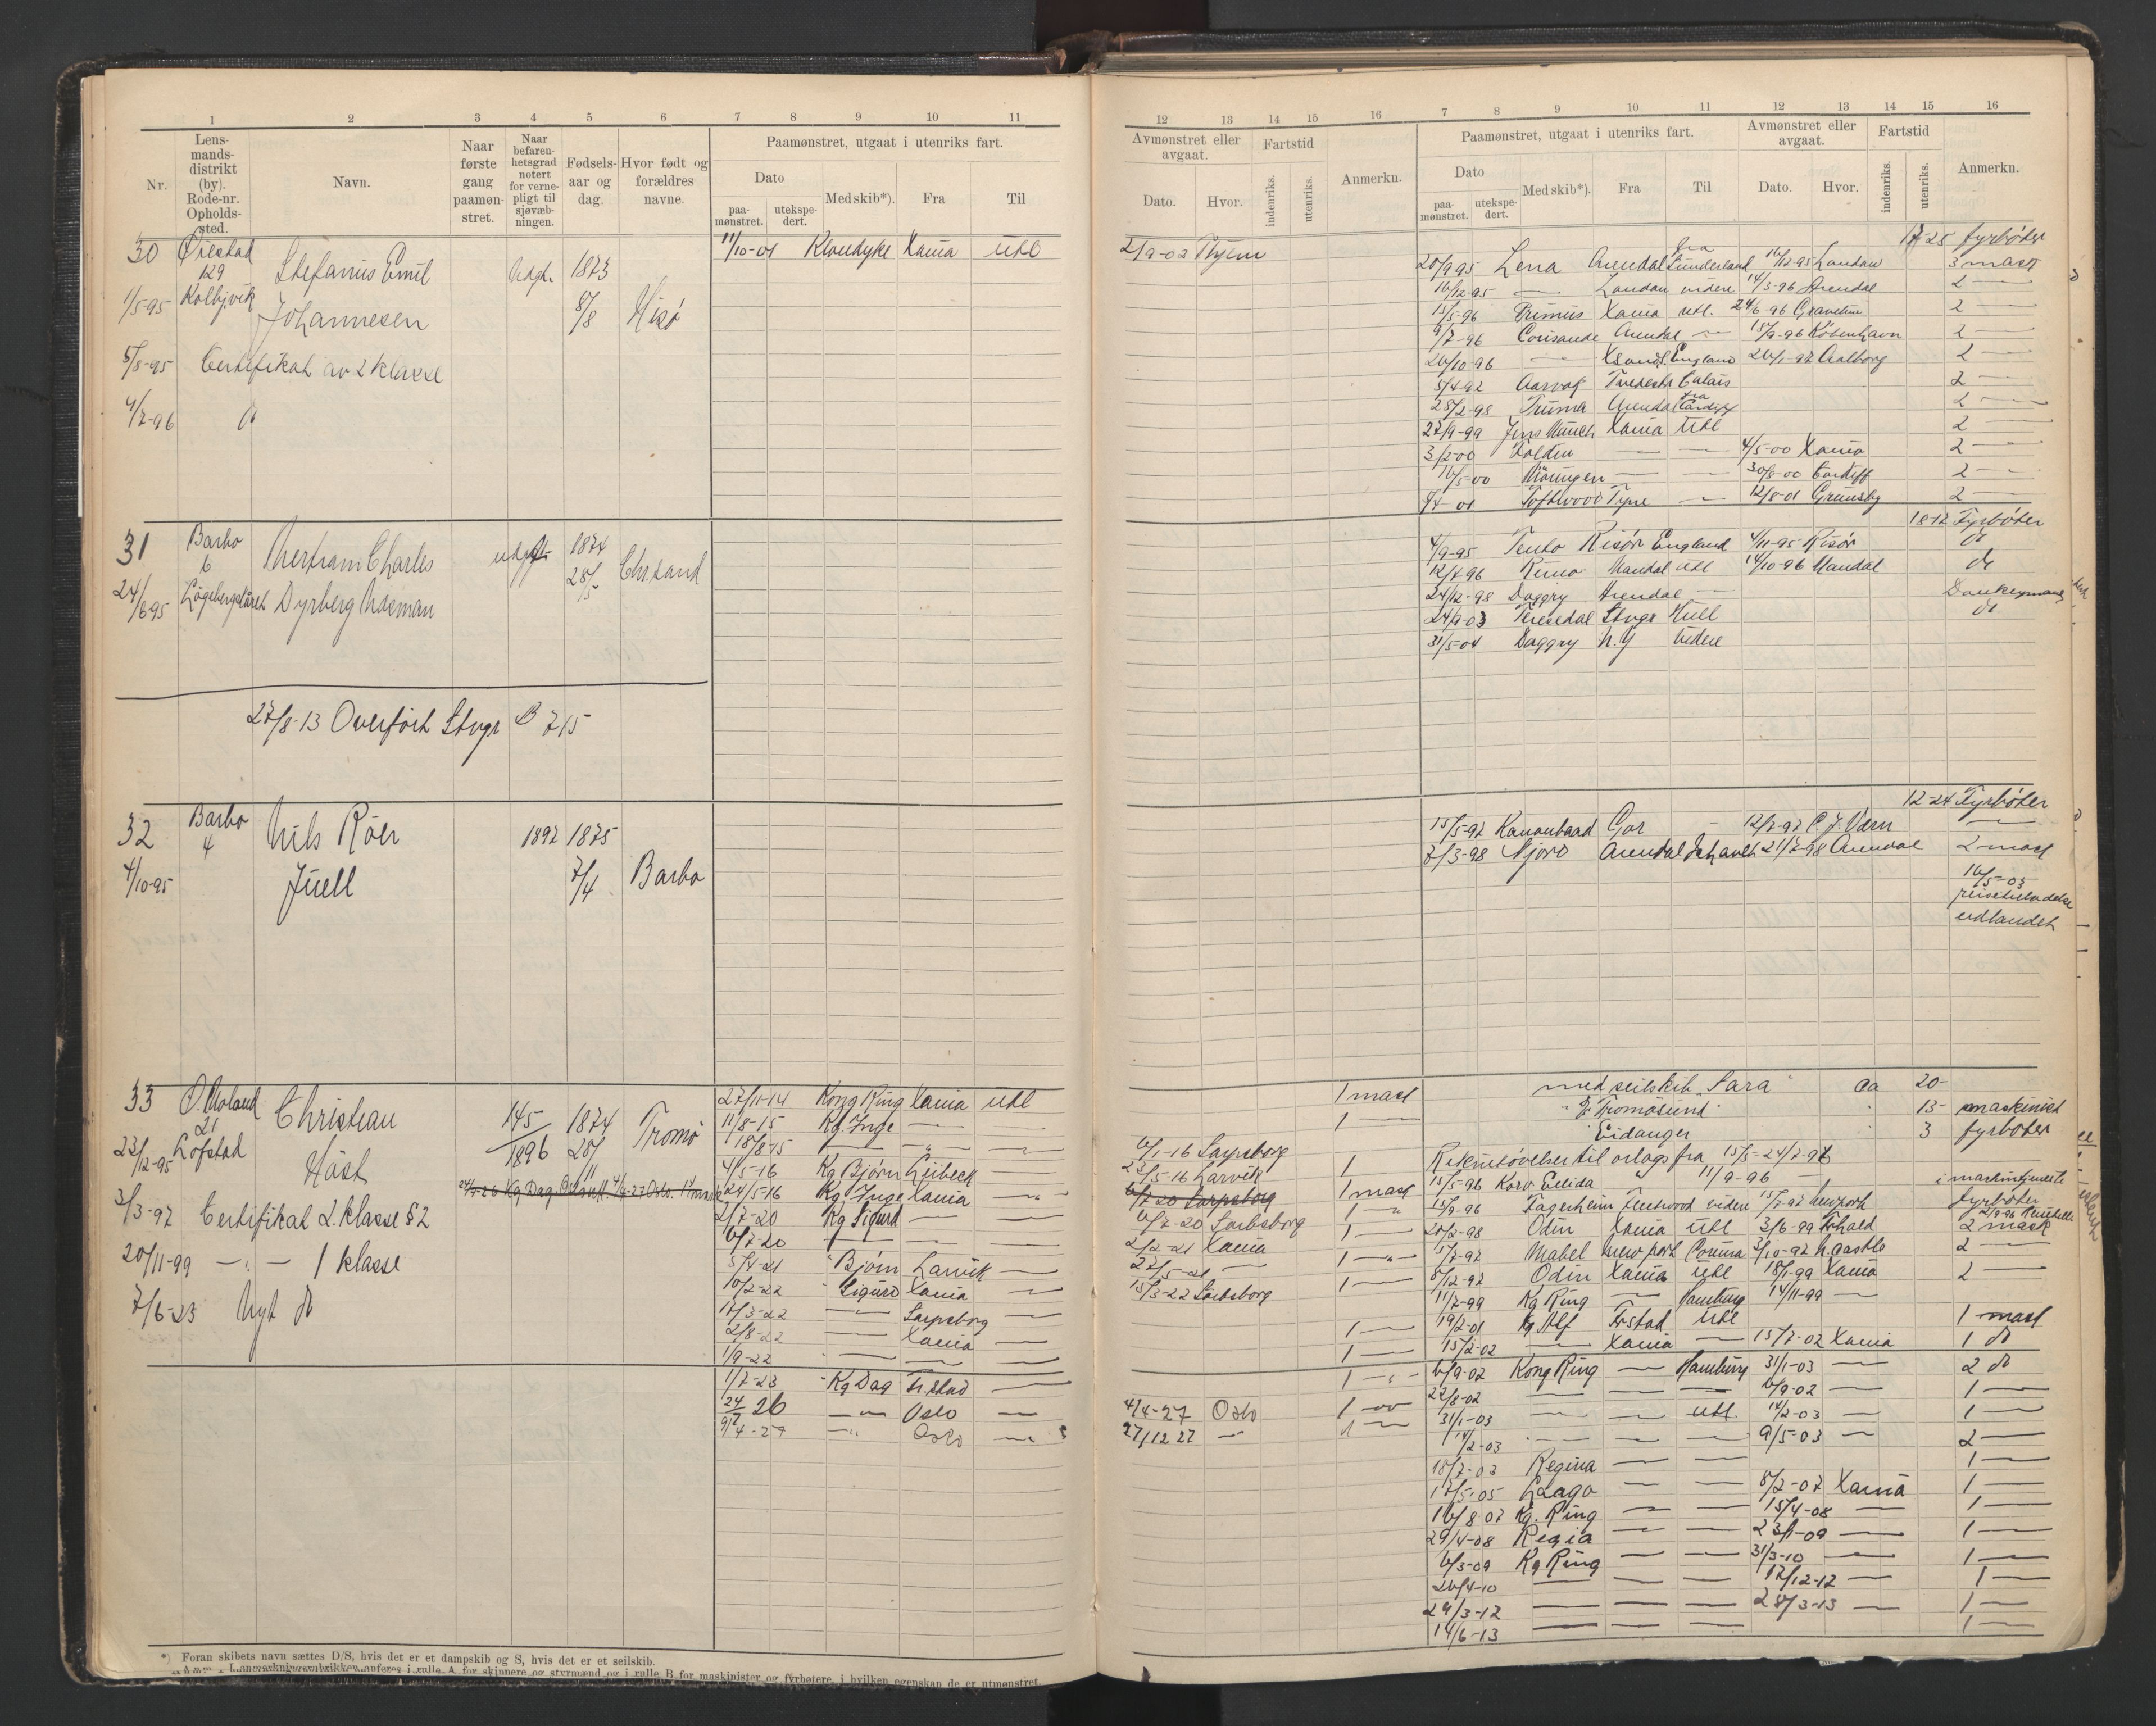 1 2 3 4 5 6 7 8 9 10 11
Nr.
Lens-
mands-
distrikt
(by).
Rode-nr.
Opholds-
sted.
Navn.
Naar
første
gang
paamøn-
stret.
Naar
befaren-
hetsgrad
notert
for verne-
pligt til
sjøvæb-
ningen.
Fødsels-
aar og
dag.
Hvor født og
forældres
navne.
Paamønstret, utgaat i utenriks fart.
Dato
paa-
mønstret.
utekspe-
dert.
Med skib*).
Fra
Til
30 Øiestad
129
1/5-95 Kolbjvik
Stefanus Emil
Johannesen
Udgh. 1873
8/8
Hisø
5/5-95 Certifikat av 2 klasse
4/7-96 do
11/10-01 Klondyke Xania Utl
31 Barbo
6
24/6 95
Bertram Charles
Dyrberg Aasman
udgh 1874
28/5
Chr.sand
27/8-13 Overført Stvgr B 715
32 Barbo
4
4/10-95
Nils Röer
Juell
1897 1875
7/4
Barbo
33 Ø. Moland
21
23/12-95 Lofstad
Christian
Høst
145/1896 1874
28/11
Tromø
3/3-97 Certifikat 2. klasse § 2
20/11-99 — " — 1 klasse
7/6-23 Nyt do
27/11-14 Kong Ring Xania Utl
11/8-15 Kg. Inge — —
18/8-15 — — —
4/5-16 Kg Bjørn Lübeck
24/5-16 Kg. Inge Xania —
2/7-20 Kg Sigurd — —
6/7-20 — — —
5/4-21 " Bjørn Larvik —
10/2-22 " Sigurd Xania —
17/3-22 — Sarpsborg —
2/8-22 — Xania —
1/9-22 — — —
1/7-23 " Kg Dag Fr.stad —
24/7 26 — " — Oslo —
9/4-27 — " — Oslo —
*) Foran skibets navn sættes D/S, hvis det er et dampskib og S, hvis det er et seilskib.
I anmerkningsrubrikken anføres i rulle A for skippere og styrmænd og i rulle B for maskinister og fyrbøtere, i hvilken egenskap de er utmønstret.
12 13 14 15 16 7 8 9 10 11 12 13 14 15 16
Avmønstret eller
avgaat.
Dato. Hvor.
Fartstid
indenriks.
utenriks.
Anmerkn.
Paamønstret, utgaat i utenriks fart.
Dato
paa-
mønstret.
utekspe-
dert.
Med skib*).
Fra
Til
Avmønstret eller
avgaat.
Dato. Hvor.
Fartstid
indenriks.
utenriks.
Anmerkn.
17-25 fyrbøter
2/9-02 Thjem
20/9 95 Lena Arendal fra Sunderland 16/12-95 London 3 mask
16/12-95 — London videre 14/3-96 Arendal 2 —
15/5-96 Primus Xania utl. 24/6-96 2 —
9/7-96 Arendal — 15/9-96 København 2 —
26/10 96 — Xsand England 26/1-97 Aalborg 2 —
5/4-97 Aarvak Tvedestr Calais 2 —
25/2-98 Truma Arendal fra Cardiff 2 —
27/9-99 Jens Munch Xania Utl 2 —
3/2-00 Folden — — 4/5-00 Xania 2 —
16/5-00 — — 30/8-00 Cardiff 2 —
Toftwood Tyne — 12/8-01 Grimsby 2 —
18-12 Fyrbøter
4/9-95 Tento Risør England 4/11-95 Risør do
12/7-96 Remo Mandal Utl 14/10-96 Mandal do
24/12-98 Daggry Arendal — Donkeymand
Stvgr Hull do
31/5-04 Daggry N. Y videre
12-24 Fyrbøter
15/5-97 Kanonbaad Gor 12/7-97 C. J. Værn —
7/3-98 Njord Arendal 21/7-98 Arendal 2 mask
16/5-03
udlandet
1 mask
1 —
med seilskib "Sara" aa 20-
" D/S Tromösund " 13- maskinist
Eidanger 3 fyrbøter
6/1-16 Sarpsborg 1
23/5-16 Larvik 1 mask
6/7 20 Sarpsborg
6/7-20 Sarbsborg 1 —
2/2-21 Xania 1 —
22/5-21 —
15/3-22 Sarbsborg 1 —
1 —
1 —
1 —
4/4-27 Oslo 1 —
27/12 27 —
15/5-96 Korv. Ellida 11/9-96 —
15/9-96 Fagerheim Fleetwood videre 15/7-97 Newport fyrbøter
20/2-98 Odin Xania Utl 3/6-99 2 mask
15/7-97 Mabel Newport 3/10-97 N. castle 2 —
8/12-97 Odin Xania Utl 18/1-99 Xania 2 —
11/7-99 Kg Ring — Hamburg 14/11-99 —
19/2-01 Kg Alf Frstad Utl 1 mask
15/2-02 — Xania — 15/7-02 Xania 1 do
6/9-02 Kong Ring — Hamburg 31/1-03 — 2 do
22/8-02 — — — 6/9-02 — 1 —
31/1-03 — — Utl. 14/2-03 — 1 —
14/2-03 — — — 9/5-03 — 2 —
18/7-03 Regina — — 1 —
17/5-05 — — 8/2-07 Xania 1 —
16/8 07 Kg. Ring — — 15/4-08 — 1 —
29/4-08 Regia — — 23/1-09 — 1 —
6/3-09 Kg Ring — — 31/3-10 — 1 —
26/4-10 — — — 17/12-12 — 1 —
29/3-12 — — — 28/3-13 — 1 —
14/6-13 — — — 1 —